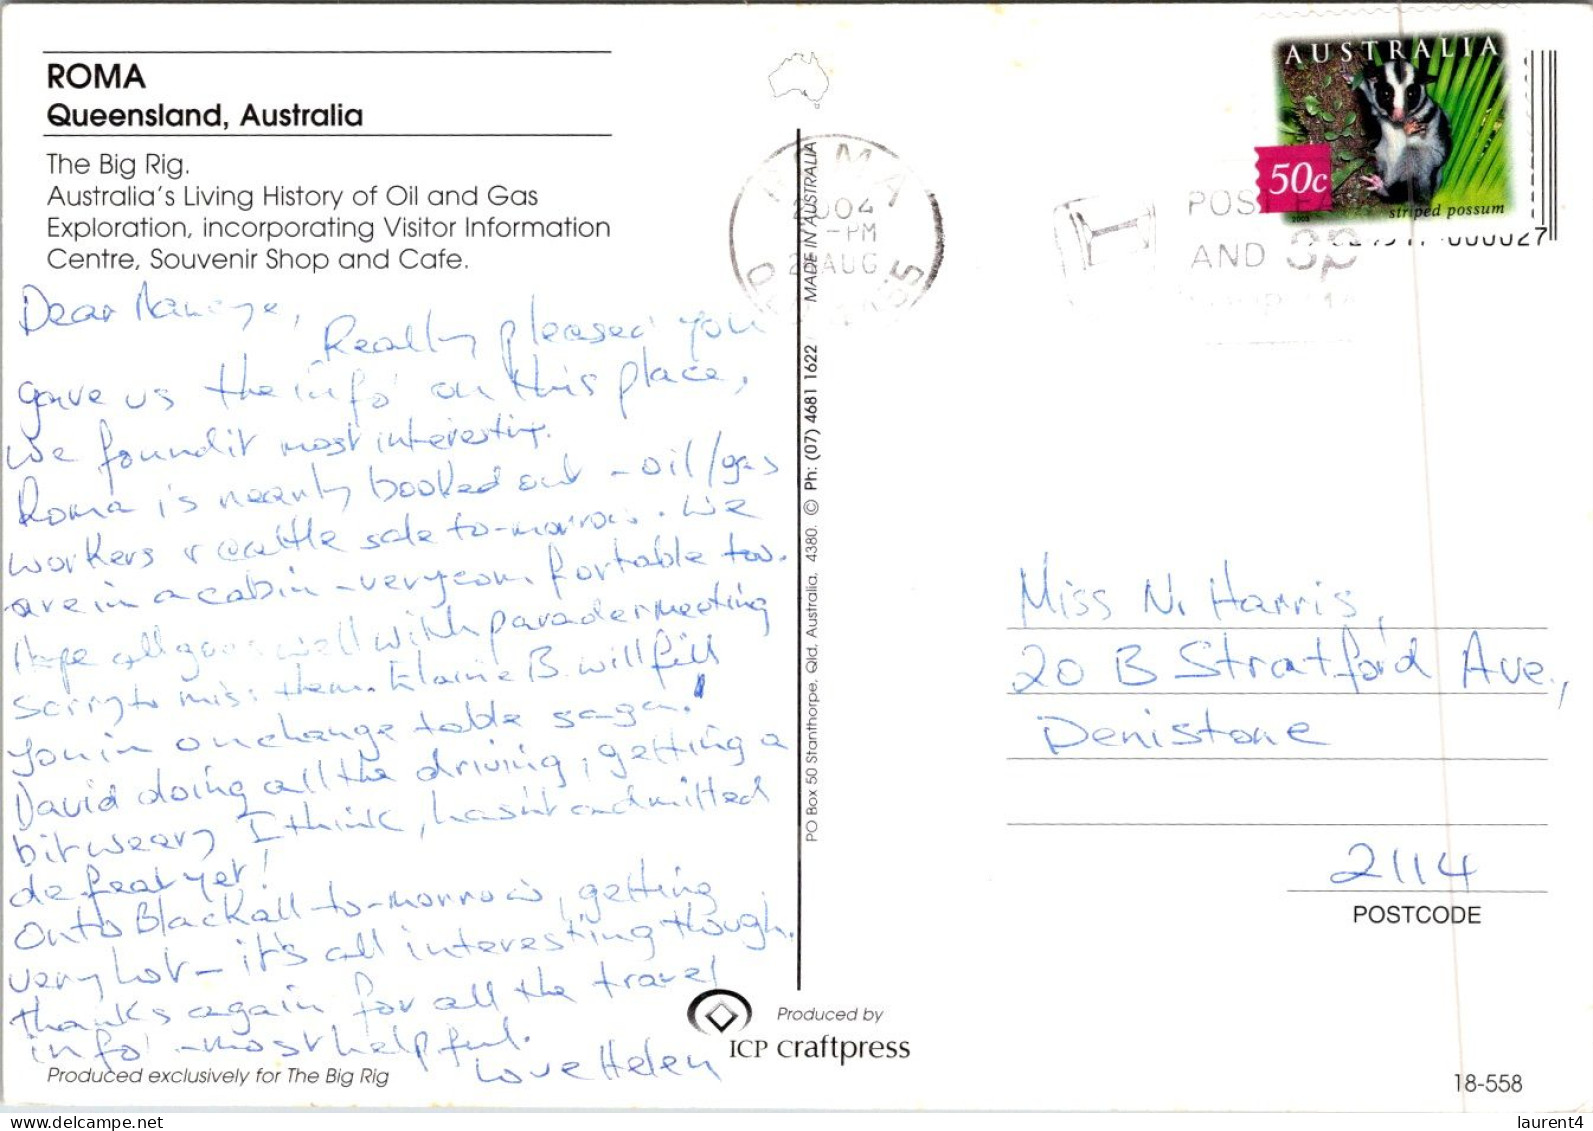 ROMA
Queensland, Australia
The Big Rig.
Australia's Living History of Oil and Gas
Exploration, incorporating Visitor Information
Centre, Souvenir Shop and Cafe.
Dear
Really pleased you
gave us the info' on this place,
we found it most interesting.
Roma is nearly booked out - oil/gas
workers & cattle sale to-morrow. We
are in a cabin - very comfortable too.
Hope all goes well with parader meeting
sorry to miss them. Elaine B. will fill
you in on change table saga!
David doing all the driving, getting a
bit weary I think, hasn't admitted
defeat yet!
Onto Blackall to-morrow, getting
very hot - it's all interesting though.
thanks again for all the travel
info' - most helpful.
Love Helen
Produced exclusively for The Big Rig
PO Box 50 Stanthorpe, Qld, Australia, 4380. © Ph: (07) 4681 1622 MADE IN AUSTRALIA
Produced by
ICP craftpress
ROMA
2004
-PM
AUG
POS
AND
AUSTRALIA
50c
2003
striped possum
Miss N. Harris,
20 B Stratford Ave.,
Denistone
2114
POSTCODE
18-558
www.delcampe.net
laurent4